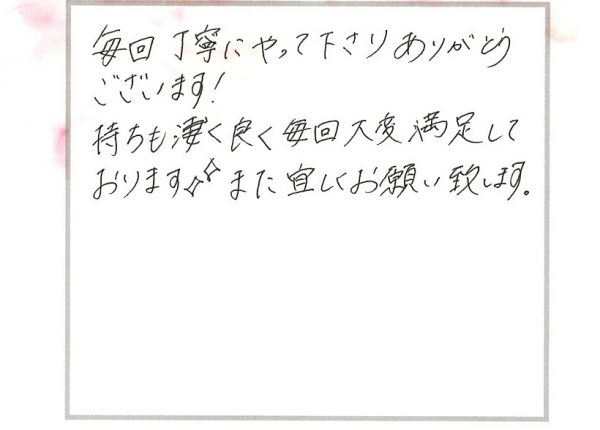 毎回丁寧にやって下さりありがとう
ございます!
持ちも凄く良く毎回大変満足して
おります✨また宜しくお願い致します。